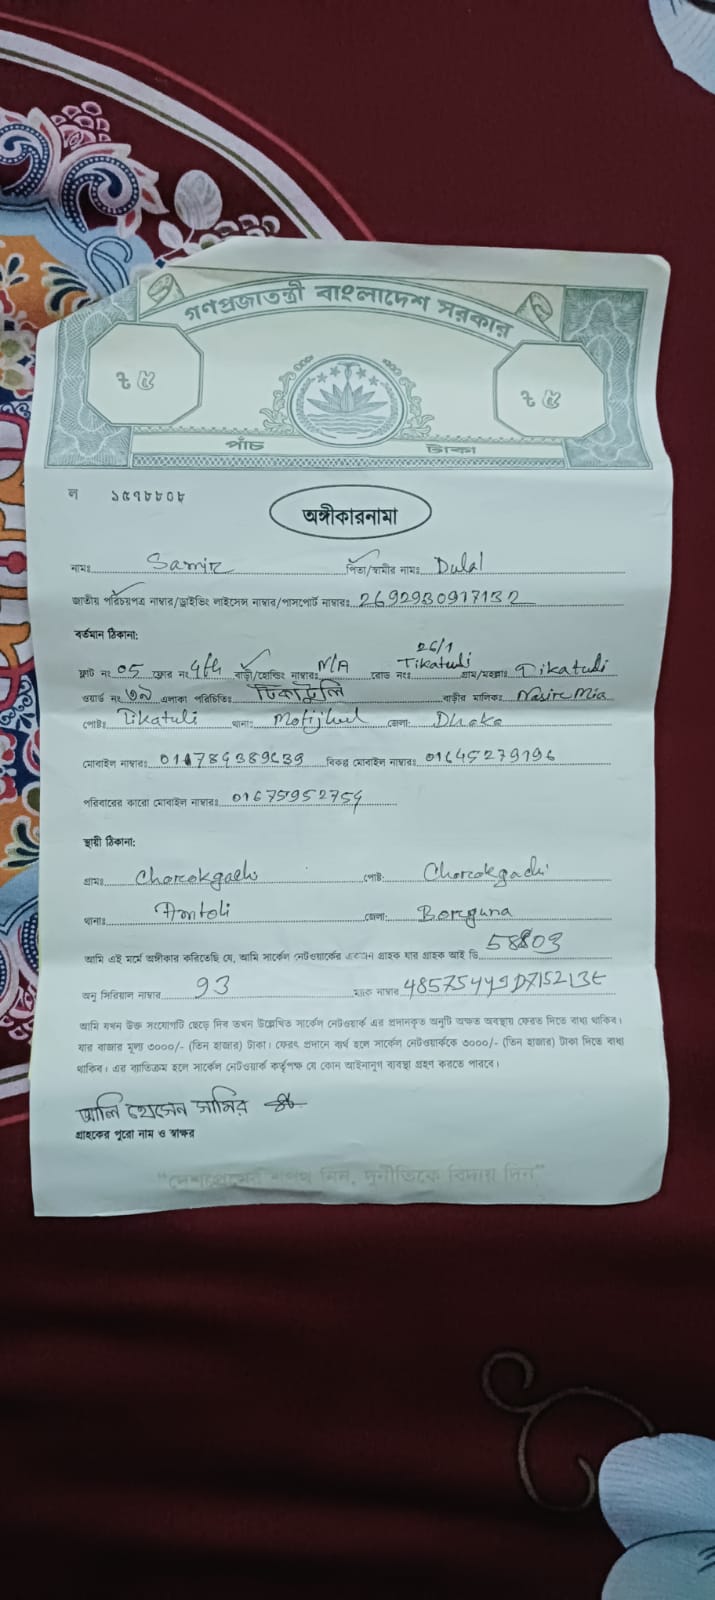 গণপ্রজাতন্ত্রী বাংলাদেশ সরকার
৳ ৫ ৳ ৫
পাঁচ টাকা
ল ১৫৭৮৮০৮
অঙ্গীকারনামা
নামঃ Samir পিতা/স্বামীর নামঃ Dulal
জাতীয় পরিচয়পত্র নাম্বার/ড্রাইভিং লাইসেন্স নাম্বার/পাসপোর্ট নাম্বারঃ 2692930917132
বর্তমান ঠিকানা:
26/1
ফ্লাট নং 05 ফ্লোর নং 4th বাড়ী/হোল্ডিং নাম্বারঃ N/A রোড নংঃ Tikatuli গ্রাম/মহল্লাঃ Tikatuli
ওয়ার্ড নং ৩৯ এলাকা পরিচিতিঃ টিকাটুলি বাড়ীর মালিকঃ Nasir Mia
পোষ্টঃ Tikatuli থানা: Motijheel জেলা: Dhaka
মোবাইল নাম্বারঃ বিকল্প মোবাইল নাম্বারঃ 01645279196
পরিবারের কারো মোবাইল নাম্বারঃ 01675952754
স্থায়ী ঠিকানা:
গ্রামঃ Chorokgachi পোষ্ট: Chorokgachi
থানাঃ Amtoli জেলা: Borguna
আমি এই মর্মে অঙ্গীকার করিতেছি যে, আমি সার্কেল নেটওয়ার্কের একজন গ্রাহক যার গ্রাহক আই ডি 58803
অনু সিরিয়াল নাম্বার 93 ম্যাক নাম্বার
আমি যখন উক্ত সংযোগটি ছেড়ে দিব তখন উল্লেখিত সার্কেল নেটওয়ার্ক এর প্রদানকৃত অনুটি অক্ষত অবস্থায় ফেরত দিতে বাধ্য থাকিব।
যার বাজার মূল্য ৩০০০/- (তিন হাজার) টাকা। ফেরৎ প্রদানে ব্যর্থ হলে সার্কেল নেটওয়ার্ককে ৩০০০/- (তিন হাজার) টাকা দিতে বাধ্য
থাকিব। এর ব্যতিক্রম হলে সার্কেল নেটওয়ার্ক কর্তৃপক্ষ যে কোন আইনানুগ ব্যবস্থা গ্রহণ করতে পারবে।
আলি হোসেন সামির
গ্রাহকের পুরো নাম ও স্বাক্ষর
"দেশপ্রেমের শপথ নিন, দুর্নীতিকে বিদায় দিন"